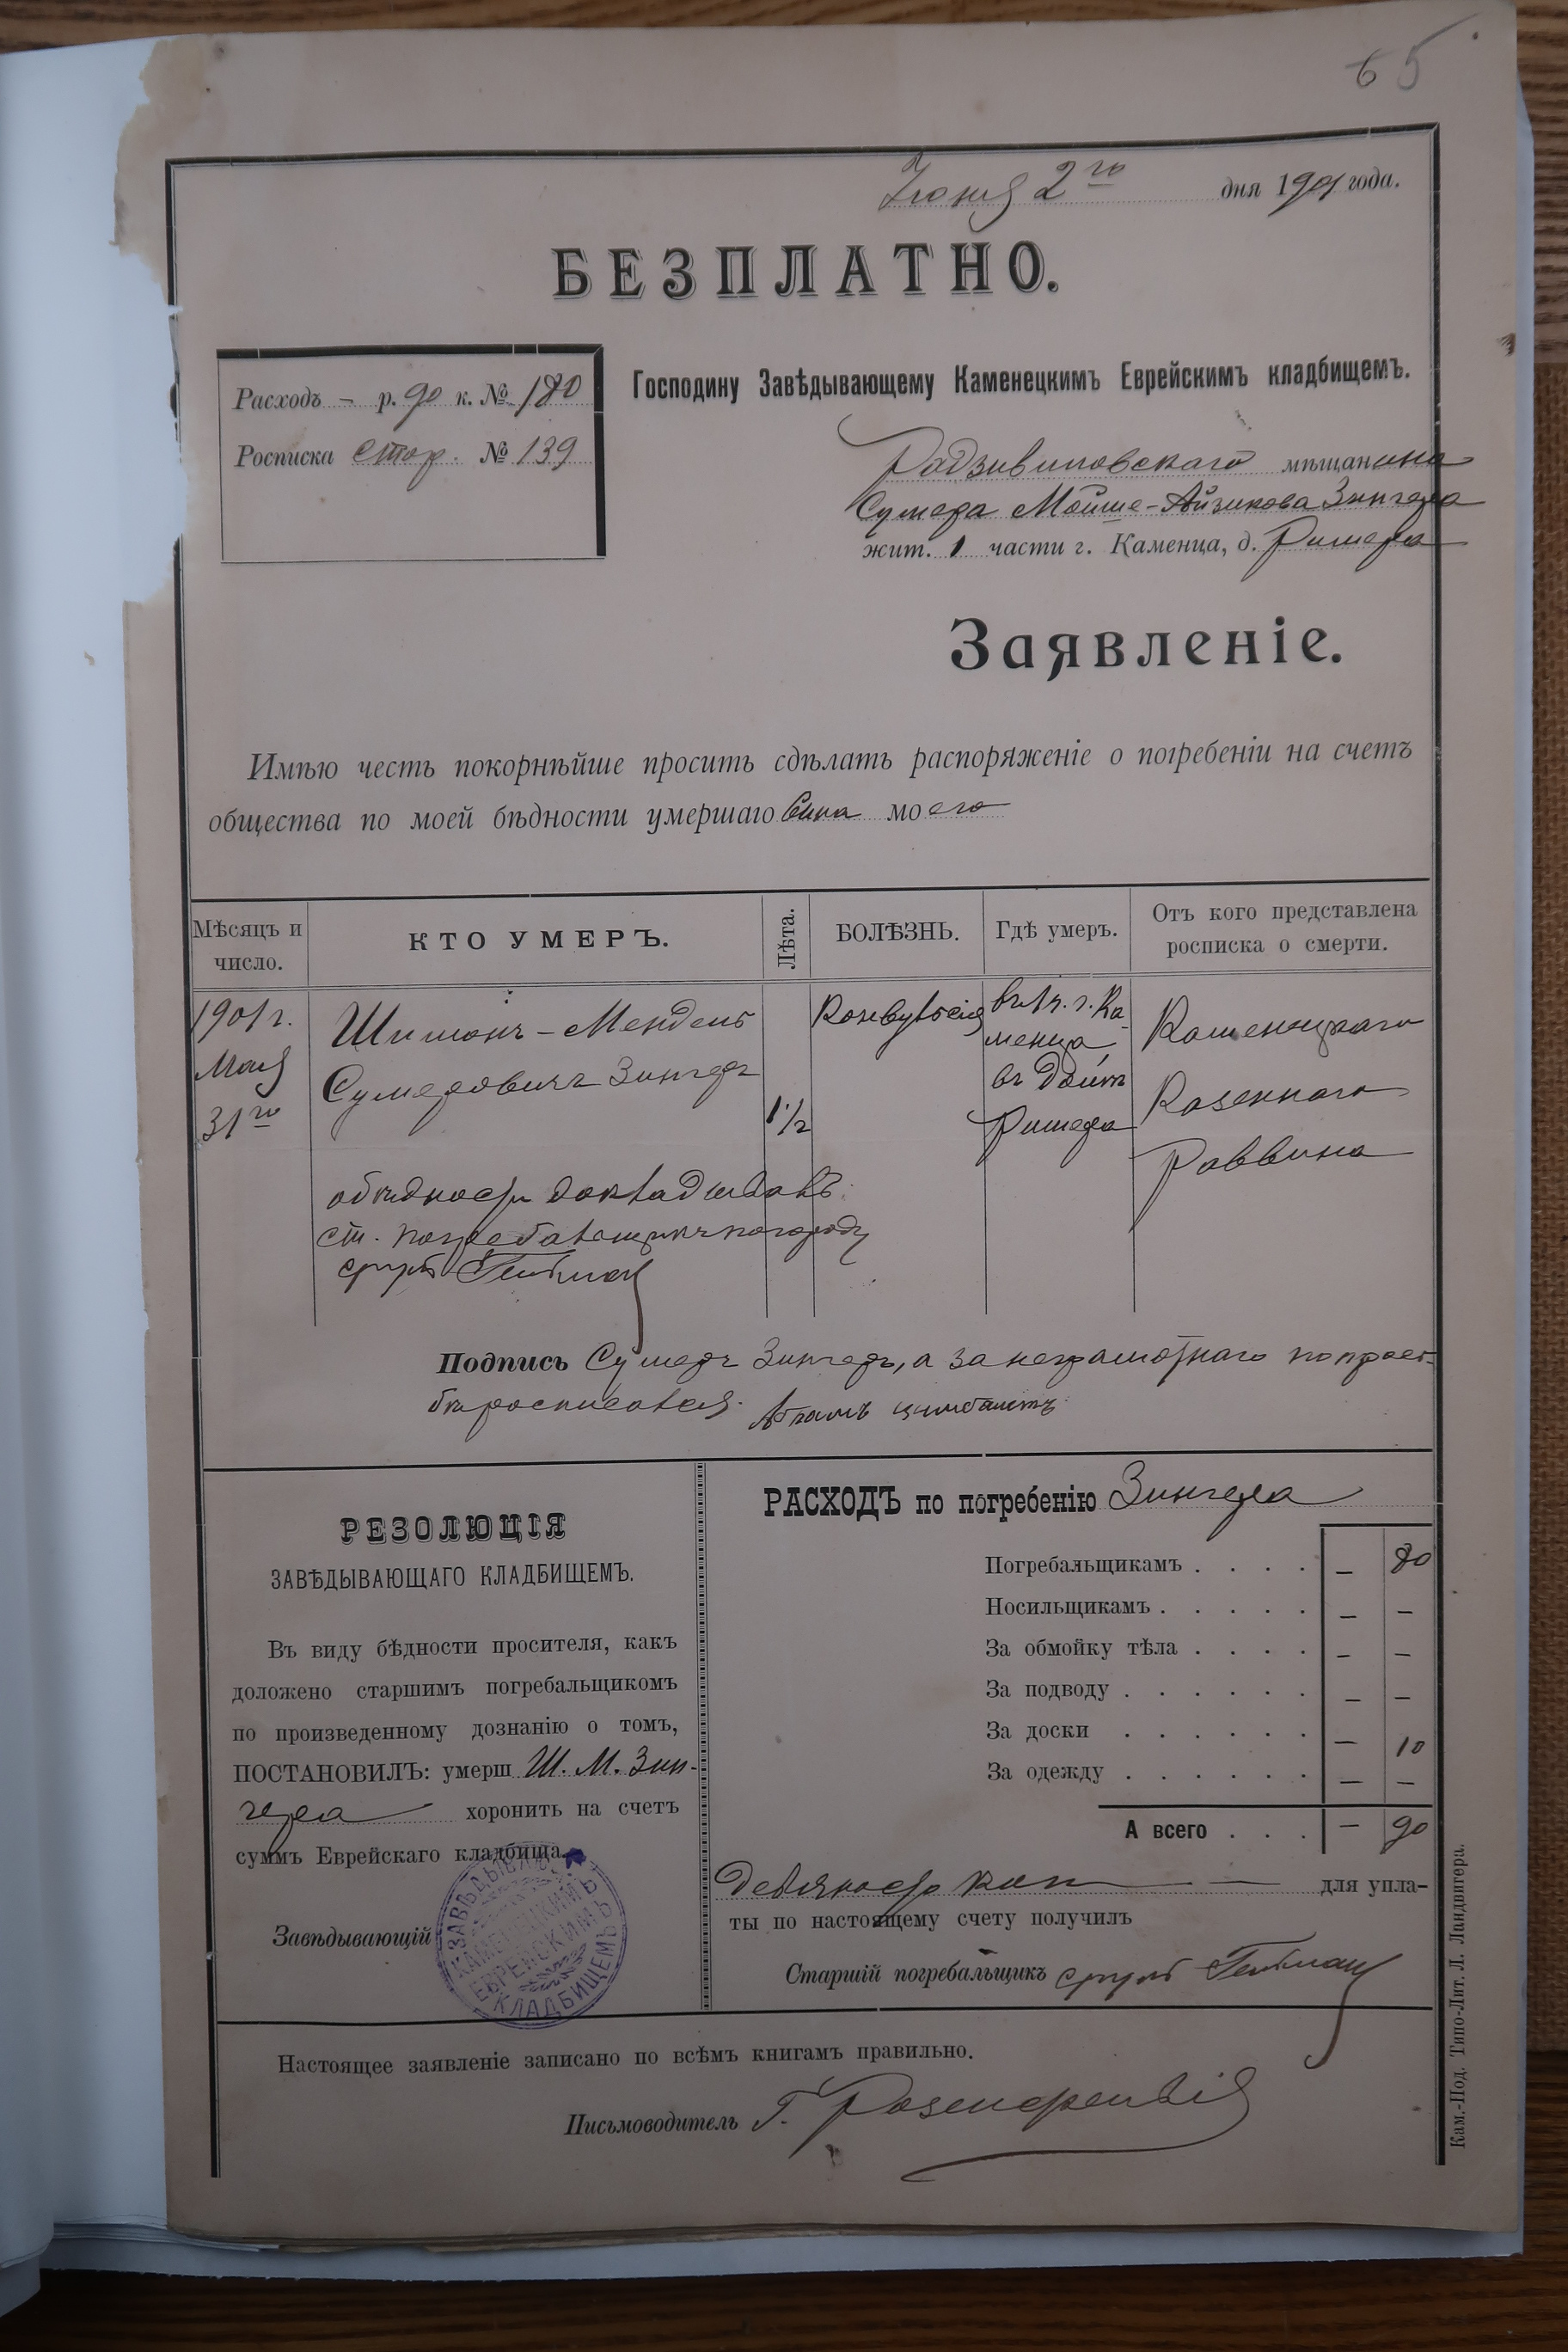 65
Іюня 2го дня 1901 года.
БЕЗПЛАТНО.
Расходъ – р. 90 к. № 180
Росписка стор. № 139
Господину Завѣдывающему Каменецкимъ Еврейскимъ кладбищемъ.
Радзивиловскаго мѣщанина
Сумера Мойше-Айзикова Зингера
жит. 1 части г. Каменца, д. Ришера
Заявленіе.
Имѣю честь покорнѣйше просить сдѣлать распоряженіе о погребеніи на счетъ
общества по моей бѣдности умершаго Сына моего
Мѣсяцъ и число.
КТО УМЕРЪ.
Лѣта.
БОЛѢЗНЬ.
Гдѣ умеръ.
Отъ кого представлена росписка о смерти.
1901 г.
Мая
31го
Шимонъ-Мендель
Сумеровичъ Зингеръ
1 1/2
Конвульсія
въ 1 ч. г. Ка-
менца
въ домѣ
Ришера
Каменецкаго
Казеннаго
Раввина
о бѣдности докладывалъ
ст. погребальщикъ по городу
Сруль Гельман
Подпись Сумеръ Зингеръ, а за неграмотнаго по прось-
бѣ росписался Абрамъ Цимбалистъ
РЕЗОЛЮЦІЯ
ЗАВѢДЫВАЮЩАГО КЛАДБИЩЕМЪ.
Въ виду бѣдности просителя, какъ
доложено старшимъ погребальщикомъ
по произведенному дознанію о томъ,
ПОСТАНОВИЛЪ: умерш Ш. М. Зин-
гера хоронить на счетъ
суммъ Еврейскаго кладбища.
Завѣдывающій
ЗАВѢДЫВАЮЩІЙ КАМЕНЕЦКИМЪ ЕВРЕЙСКИМЪ КЛАДБИЩЕМЪ
РАСХОДЪ по погребенію Зингера
Погребальщикамъ . . . . – 80
Носильщикамъ . . . . . – –
За обмойку тѣла . . . . – –
За подводу . . . . . . – –
За доски . . . . . . – 10
За одежду . . . . . . – –
А всего . . . – 90
Девяносто коп — — для упла-
ты по настоящему счету получилъ
Старшій погребальщикъ Сруль Гельман
Настоящее заявленіе записано по всѣмъ книгамъ правильно.
Письмоводитель Г.
Кам.-Под. Типо-Лит. Л. Ландвигера.